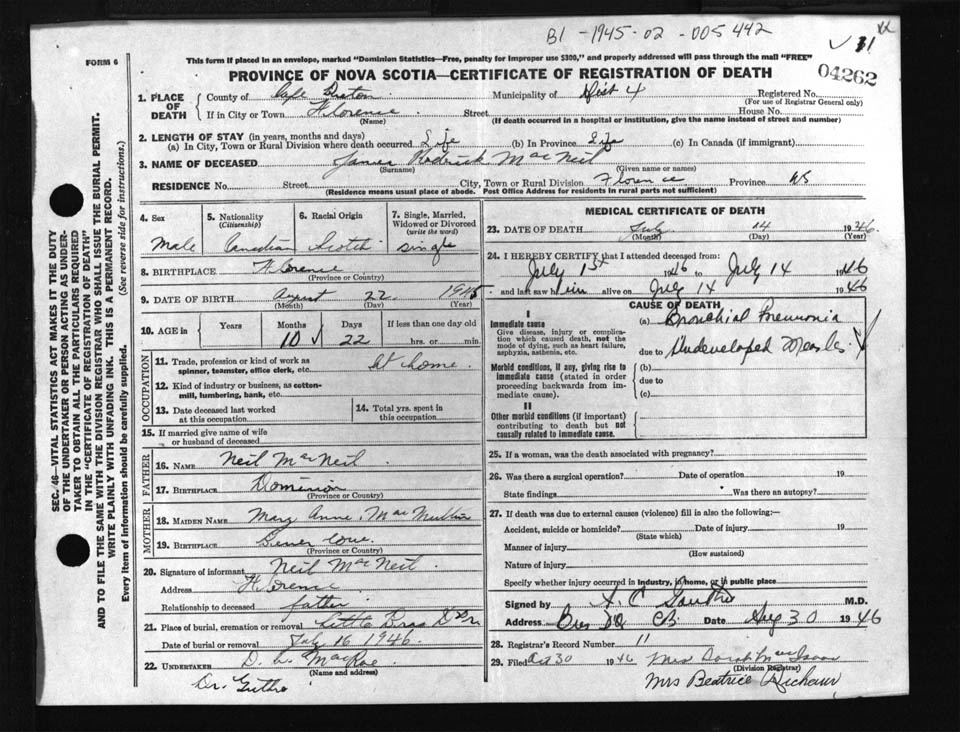 B1 - 1945 - 02 - 005442
31
FORM 6
This form if placed in an envelope, marked "Dominion Statistics—Free, penalty for improper use $300," and properly addressed will pass through the mail "FREE"
PROVINCE OF NOVA SCOTIA—CERTIFICATE OF REGISTRATION OF DEATH
04262
1. PLACE OF DEATH
County of Cape Breton Municipality of Dist 4 Registered No.
(For use of Registrar General only)
If in City or Town Florence Street House No.
(Name) (If death occurred in a hospital or institution, give the name instead of street and number)
2. LENGTH OF STAY (in years, months and days)
(a) In City, Town or Rural Division where death occurred Life (b) In Province Life (c) In Canada (if immigrant)
3. NAME OF DECEASED James Roderick MacNeil
(Surname) (Given name or names)
RESIDENCE No. Street City, Town or Rural Division Florence Province NS
(Residence means usual place of abode. Post Office Address for residents in rural parts not sufficient)
4. Sex Male
5. Nationality (Citizenship) Canadian
6. Racial Origin Scotch
7. Single, Married, Widowed or Divorced (write the word) single
8. BIRTHPLACE Florence
(Province or Country)
9. DATE OF BIRTH August 22 1945
(Month) (Day) (Year)
10. AGE in Years Months Days If less than one day old
10 22 hrs. or min.
OCCUPATION
11. Trade, profession or kind of work as spinner, teamster, office clerk, etc. At home
12. Kind of industry or business, as cotton-mill, lumbering, bank, etc.
13. Date deceased last worked at this occupation
14. Total yrs. spent in this occupation
15. If married give name of wife or husband of deceased
FATHER
16. NAME Neil MacNeil
17. BIRTHPLACE Dominion
(Province or Country)
MOTHER
18. MAIDEN NAME Mary Anne
19. BIRTHPLACE
(Province or Country)
20. Signature of informant Neil MacNeil
Address Florence
Relationship to deceased father
21. Place of burial, cremation or removal Little Bras D'Or
Date of burial or removal July 16 1946
22. UNDERTAKER MacRae
(Name and address)
Dr. Guthro
MEDICAL CERTIFICATE OF DEATH
23. DATE OF DEATH July 14 1946
(Month) (Day) (Year)
24. I HEREBY CERTIFY that I attended deceased from:
July 1st 1946 to July 14 1946
and last saw him alive on July 14 1946
CAUSE OF DEATH
I
Immediate cause
Give disease, injury or complication which caused death, not the mode of dying, such as heart failure, asphyxia, asthenia, etc.
(a) Bronchial Pneumonia
due to Undeveloped Measles
Morbid conditions, if any, giving rise to immediate cause (stated in order proceeding backwards from immediate cause).
(b)
due to
(c)
II
Other morbid conditions (if important) contributing to death but not causally related to immediate cause.
25. If a woman, was the death associated with pregnancy?
26. Was there a surgical operation? Date of operation 19
State findings Was there an autopsy?
27. If death was due to external causes (violence) fill in also the following:—
Accident, suicide or homicide? Date of injury 19
(State which)
Manner of injury
(How sustained)
Nature of injury
Specify whether injury occurred in industry, in home, or in public place
Signed by M.D.
Address Date Aug 30 1946
28. Registrar's Record Number 11
29. Filed 30 1946 Mrs Dorah MacIsaac
(Division Registrar)
Mrs Beatrice
SEC. 46—VITAL STATISTICS ACT MAKES IT THE DUTY
OF THE UNDERTAKER OR PERSON ACTING AS UNDER-
TAKER TO OBTAIN ALL THE PARTICULARS REQUIRED
IN THE "CERTIFICATE OF REGISTRATION OF DEATH"
AND TO FILE THE SAME WITH THE DIVISION REGISTRAR WHO SHALL ISSUE THE BURIAL PERMIT.
WRITE PLAINLY WITH UNFADING INK. THIS IS A PERMANENT RECORD.
Every item of information should be carefully supplied. (See reverse side for instructions.)